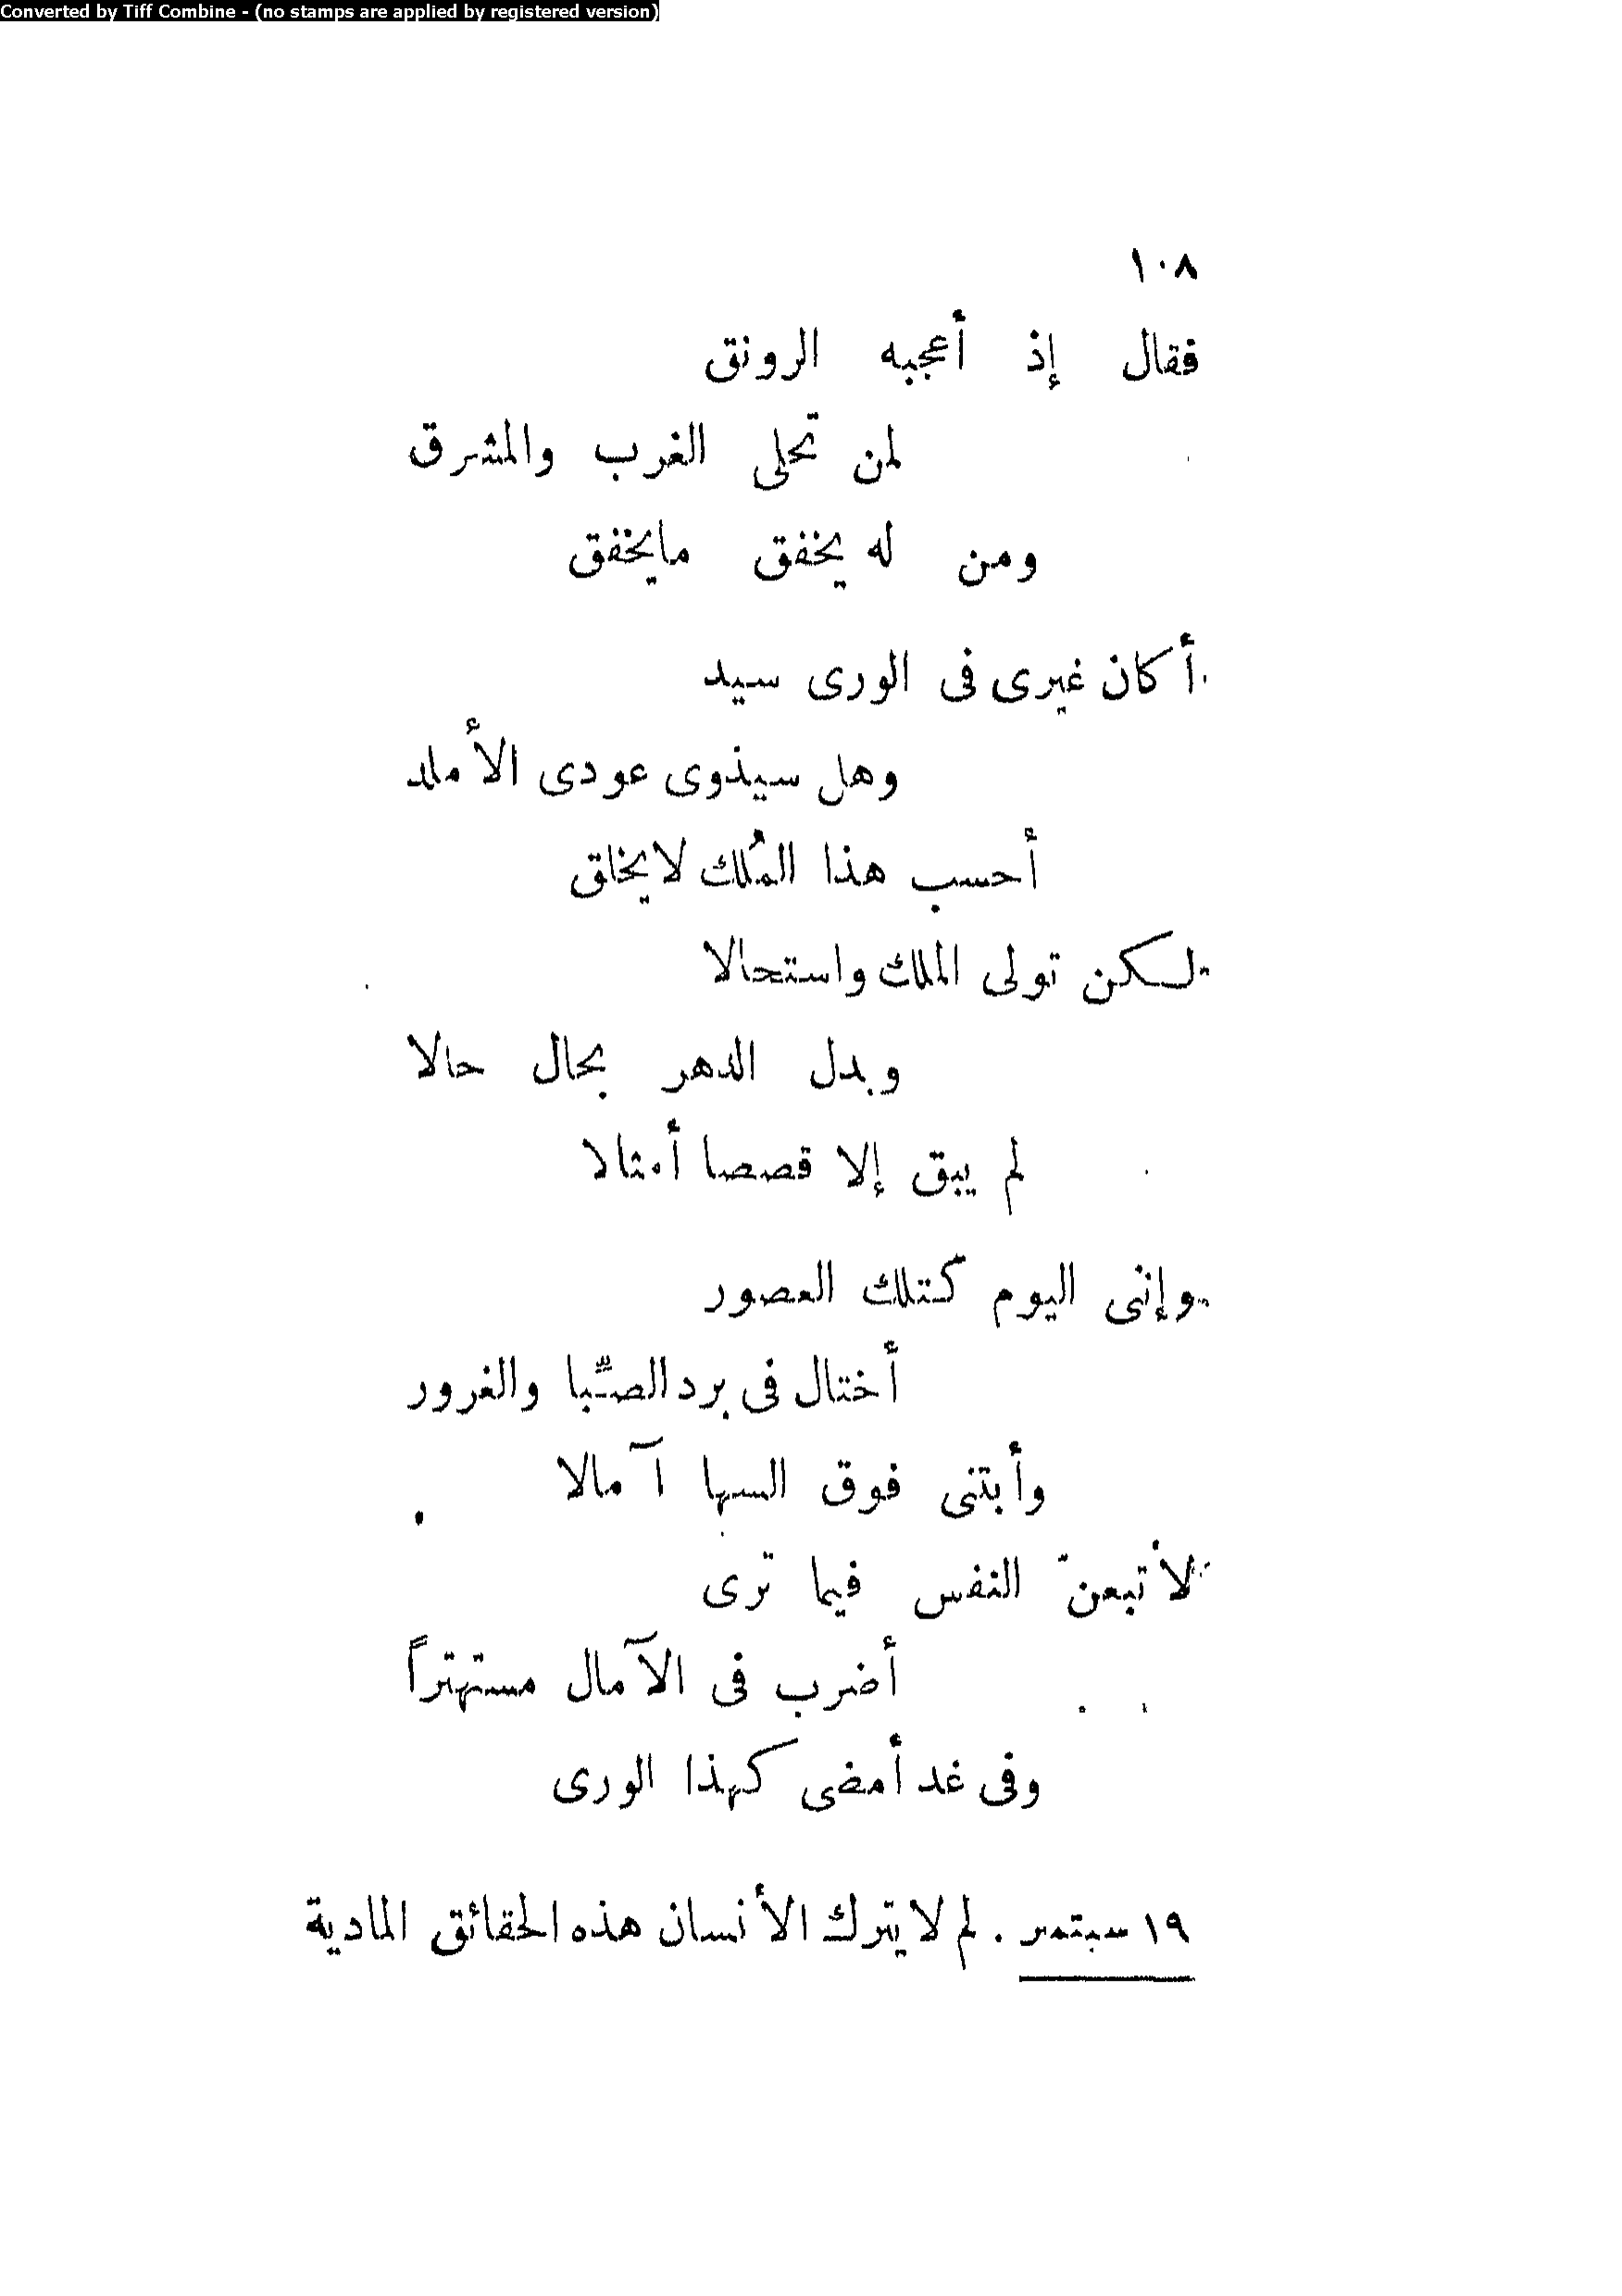 Converted by Tiff Combine - (no stamps are applied by registered version)
١٠٨
فقال إذ أعجبه الرونق
لمن تحلى الغرب والمشرق
ومن له يخفق مايخفق
أكان غيرى فى الورى سيد
وهل سيذوى عودى الأملد
أحسب هذا المُلك لايخلق
لكن تولى الملك واستحالا
وبدل الدهر بحال حالا
لم يبق إلا قصصا أمثالا
وإننى اليوم كتلك العصور
أختال فى برد الصِّبا والغرور
وأبتنى فوق السها آمالا
لأتبعنّ النفس فيما ترى
أضرب فى الآمال مستهتراً
وفى غد أمضى كهذا الورى
١٩ سبتمبر . لم لا يترك الأنسان هذه الحقائق المادية